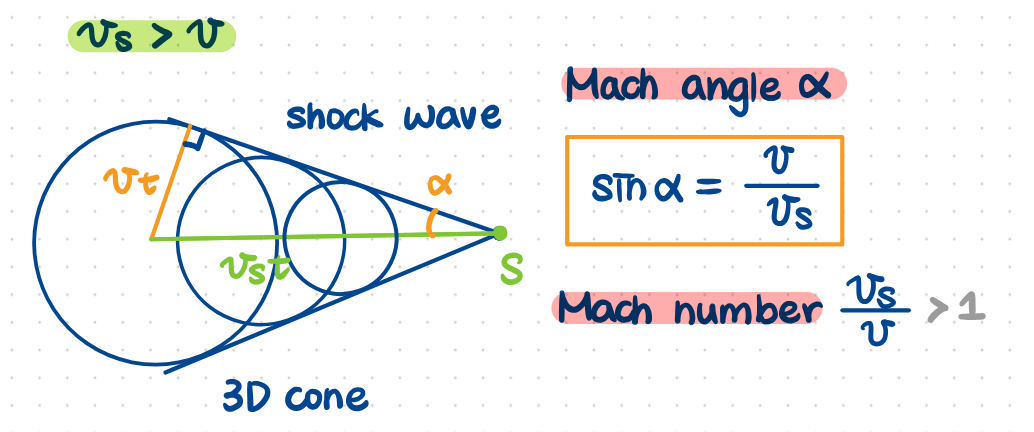 vs > v
shock wave
vt
α
vst
S
3D cone
Mach angle α
sin α = v / vs
Mach number vs / v > 1